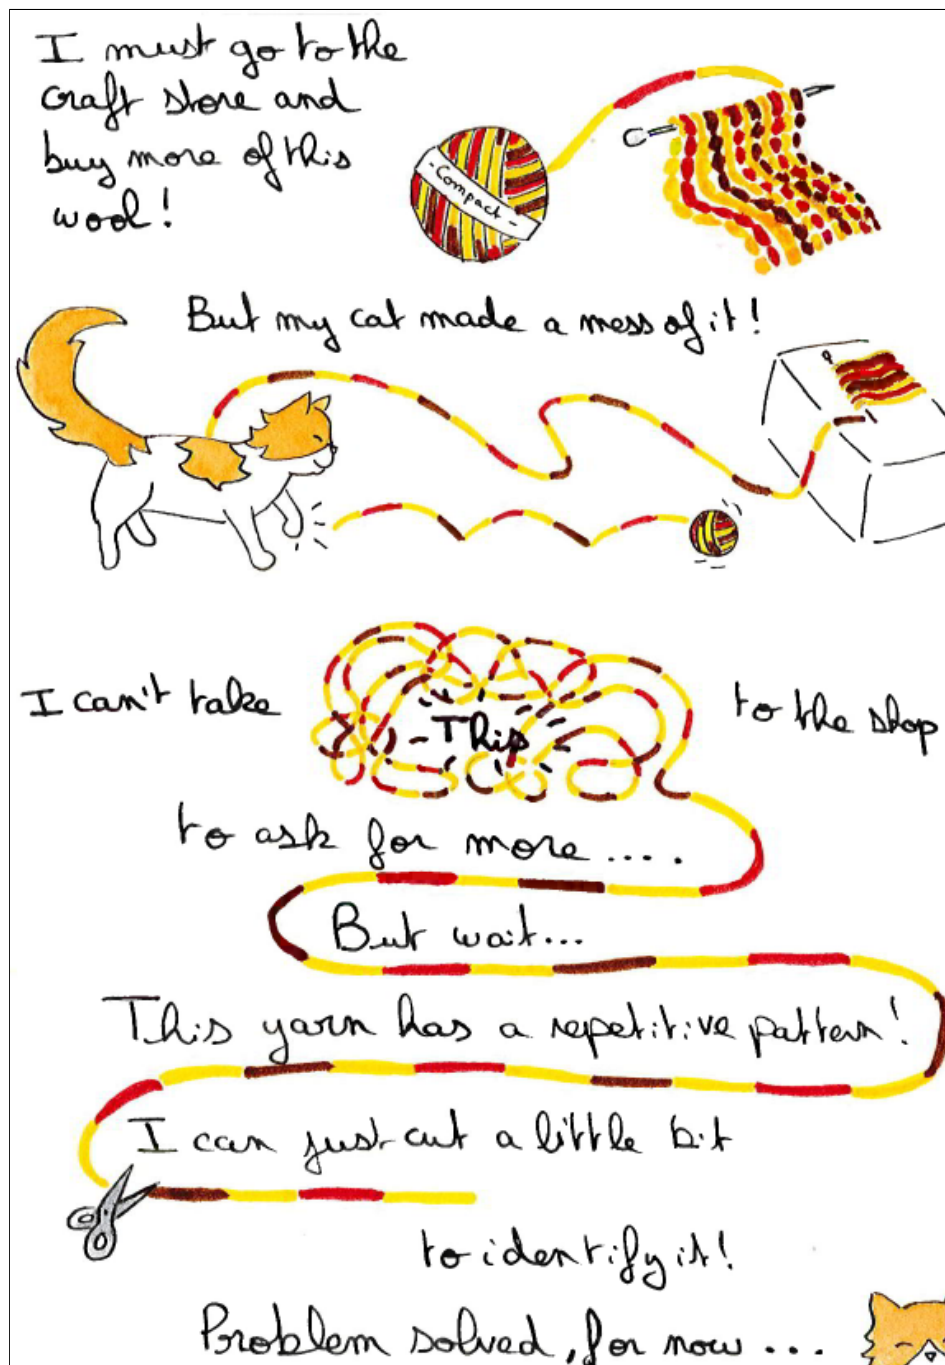 I must go to the
craft store and
buy more of this
wool!
- Compact -
But my cat made a mess of it!
I can't take - This - to the shop
to ask for more ....
But wait...
This yarn has a repetitive pattern!
I can just cut a little bit
to identify it!
Problem solved, for now ...